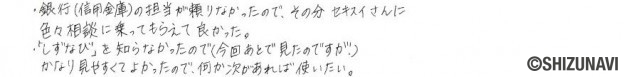 ・銀行(信用金庫)の担当が頼りなかったので、その分 セキスイさんに
色々相談に乗ってもらえて良かった。
・「しずなび」を知らなかったので(今回あとで見たのですが)
かなり見やすくてよかったので、何か次があれば使いたい。
©SHIZUNAVI